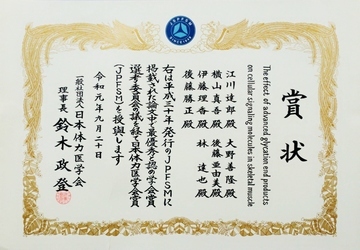 賞状
The effect of advanced glycation end products
on cellular signaling molecules in skeletal muscle
江川達郎殿 大野善隆殿
横山真吾殿 後藤亜由美殿
伊藤理香殿 林達也殿
後藤勝正殿
右は平成三十年発行のJPFSMに
掲載された論文中で最優秀と認め学会賞
選考委員会の議を経て日本体力医学会賞
(JPFSM)を授与します
令和元年九月二十日
一般社団法人日本体力医学会
理事長 鈴木政登